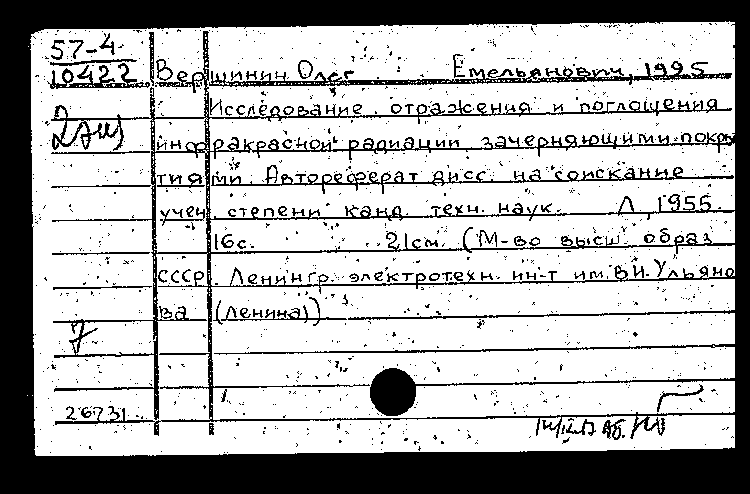 57-4
10422 Вершинин Олег Емельянович, 1995
Исследование отражения и поглощения
2 экз инфракрасной радиации зачерняющими покры
тиями. Автореферат дисс. на соискание
учен. степени канд. техн. наук. Л, 1955.
16с. 21см. (М-во высш. образ
СССР. Ленингр. электротехн. ин-т им. В.И. Ульяно
ва (Ленина))
7
26731